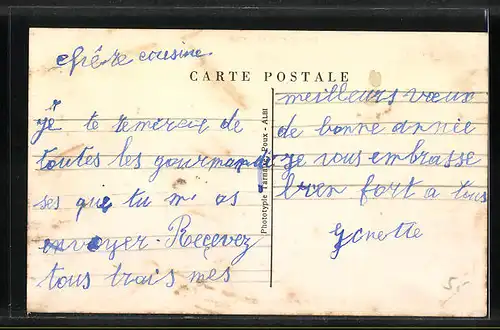 chère cousine
CARTE POSTALE
je te remercie de
toutes les gourmandi
ses que tu m as
envoyer. Recevez
tous trois mes
meilleurs vœux
de bonne année
je vous embrasse
bien fort a tous
Ginette
Phototypie Tarnaise Poux - ALBI
5,-